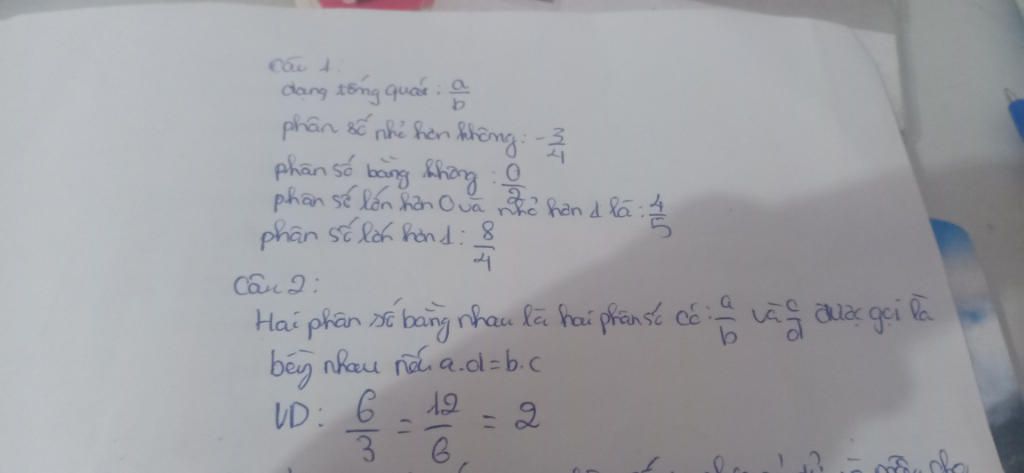 Câu 1:
dạng tổng quát: a/b
phân số nhỏ hơn không: -3/4
phân số bằng không: 0/2
phân số lớn hơn 0 và nhỏ hơn 1 là: 4/5
phân số lớn hơn 1: 8/4
Câu 2:
Hai phân số bằng nhau là hai phân số có: a/b và c/d được gọi là
bằng nhau nếu a.d=b.c
VD: 6/3 = 12/6 = 2